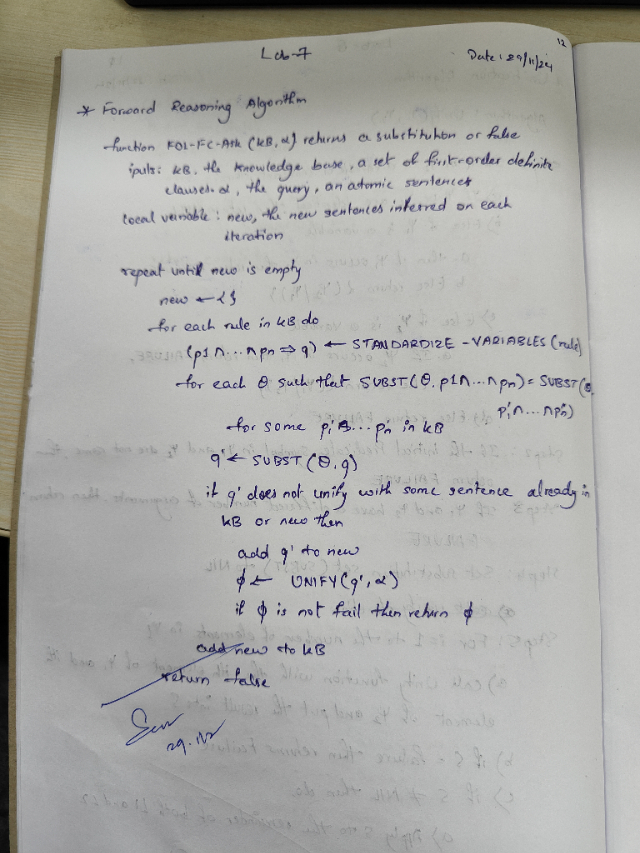 12
Lab-7
Date: 29/11/24
* Forward Reasoning Algorithm
function FOL-FC-Ask (KB, α) returns a substitution or false
iputs: KB, the knowledge base, a set of first-order definite
clauses. α, the query, an atomic sentences
local variable: new, the new sentences inferred on each
iteration
repeat until new is empty
new ← {}
for each rule in KB do
(p1 ∧...∧ pn ⇒ q) ← STANDARDIZE-VARIABLES (rule)
for each θ such that SUBST(θ, p1∧...∧pn) = SUBST(θ,
p'1∧...∧p'n)
for some p'1...p'n in KB
q' ← SUBST(θ, q)
if q' does not unify with some sentence already in
KB or new then
add q' to new
ϕ ← UNIFY(q', α)
if ϕ is not fail then return ϕ
add new to KB
return false